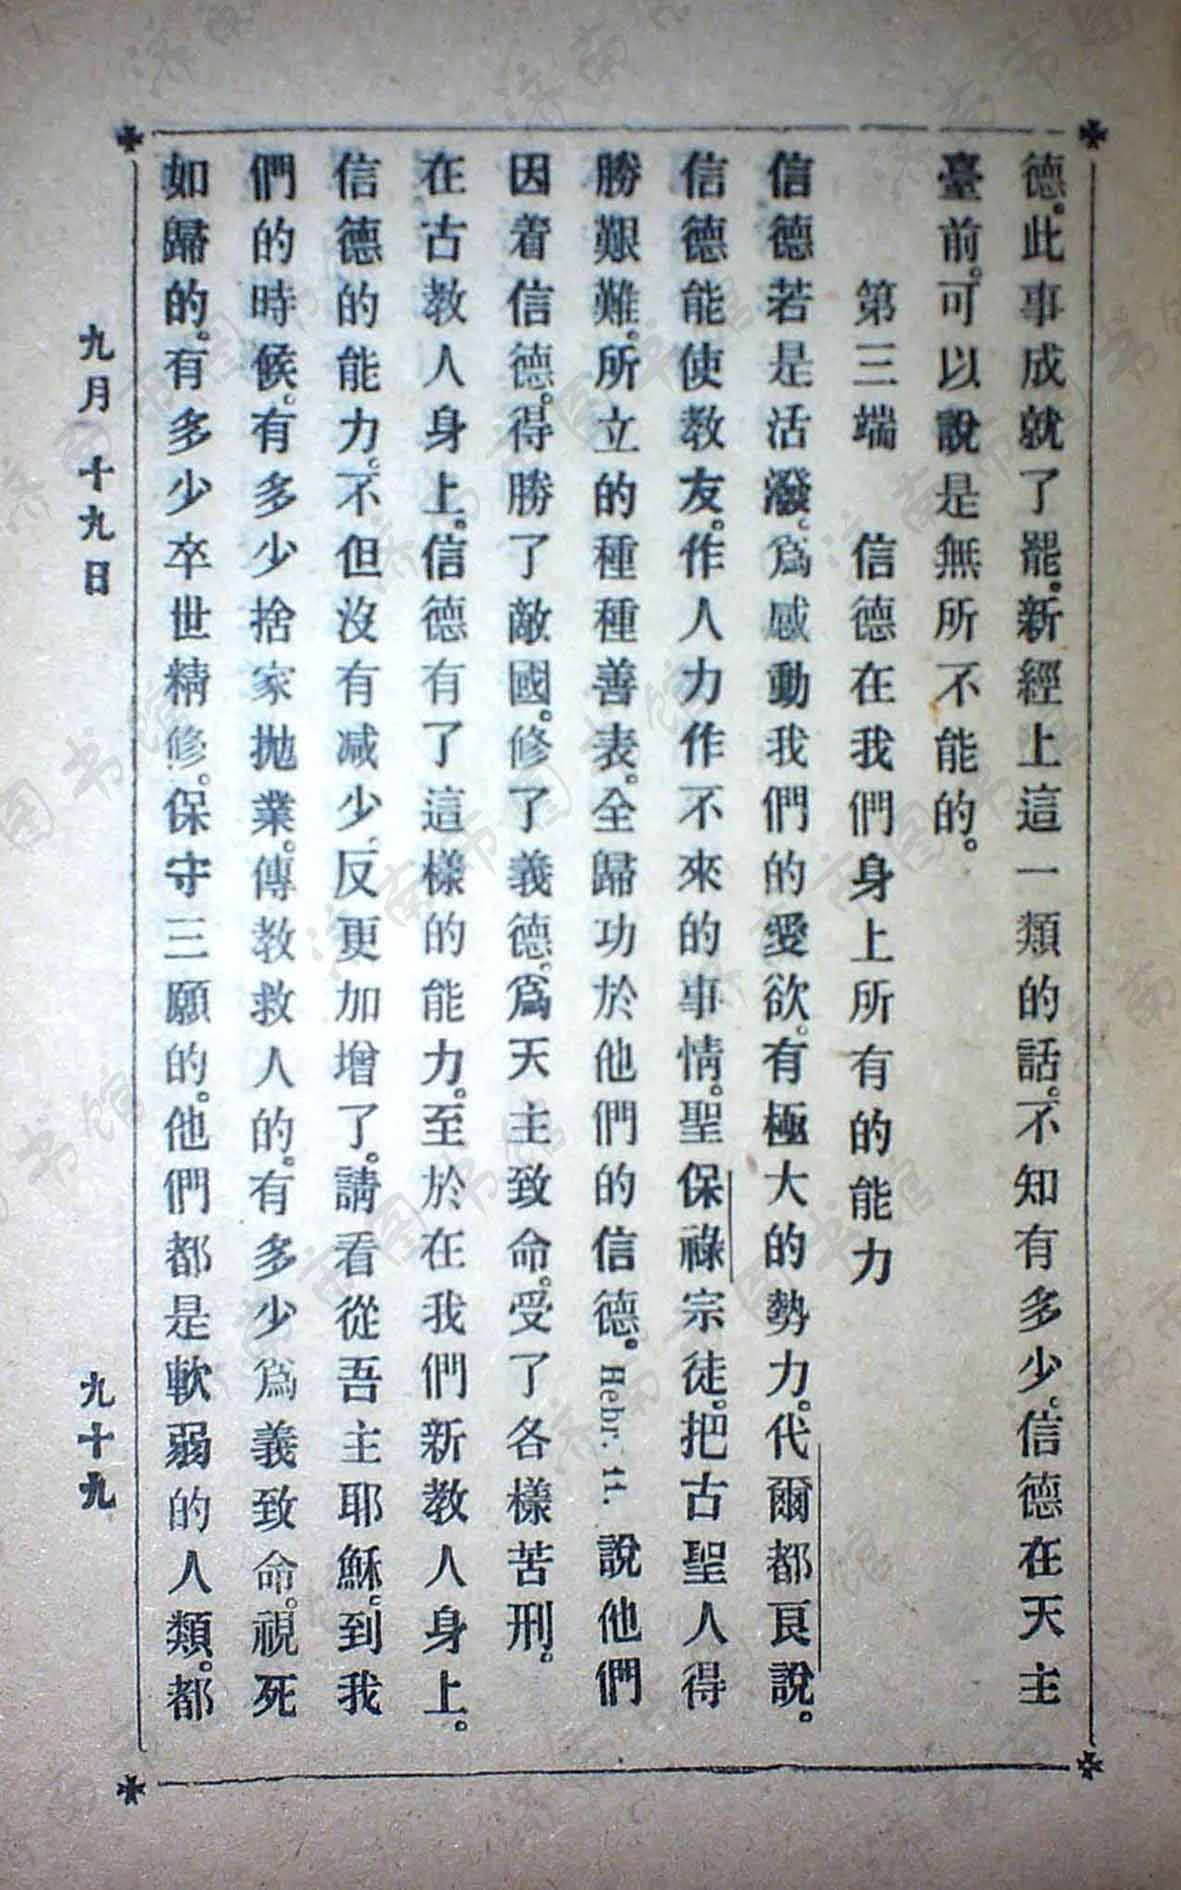 德。此事成就了罷。新經上這一類的話。不知有多少。信德在天主
臺前。可以說是無所不能的。
第三端　信德在我們身上所有的能力
信德若是活潑。爲感動我們的愛欲。有極大的勢力。代爾都良說。
信德能使教友。作人力作不來的事情。聖保祿宗徒。把古聖人得
勝艱難。所立的種種善表。全歸功於他們的信德。Hebr. 11. 說他們
因着信德。得勝了敵國。修了義德。爲天主致命。受了各樣苦刑。
在古教人身上。信德有了這樣的能力。至於在我們新教人身上。
信德的能力。不但沒有減少。反更加增了。請看從吾主耶穌。到我
們的時候。有多少捨家抛業。傳教救人的。有多少爲義致命。視死
如歸的。有多少卒世精修。保守三願的。他們都是軟弱的人類。都
九月十九日
九十九
济南市图书馆